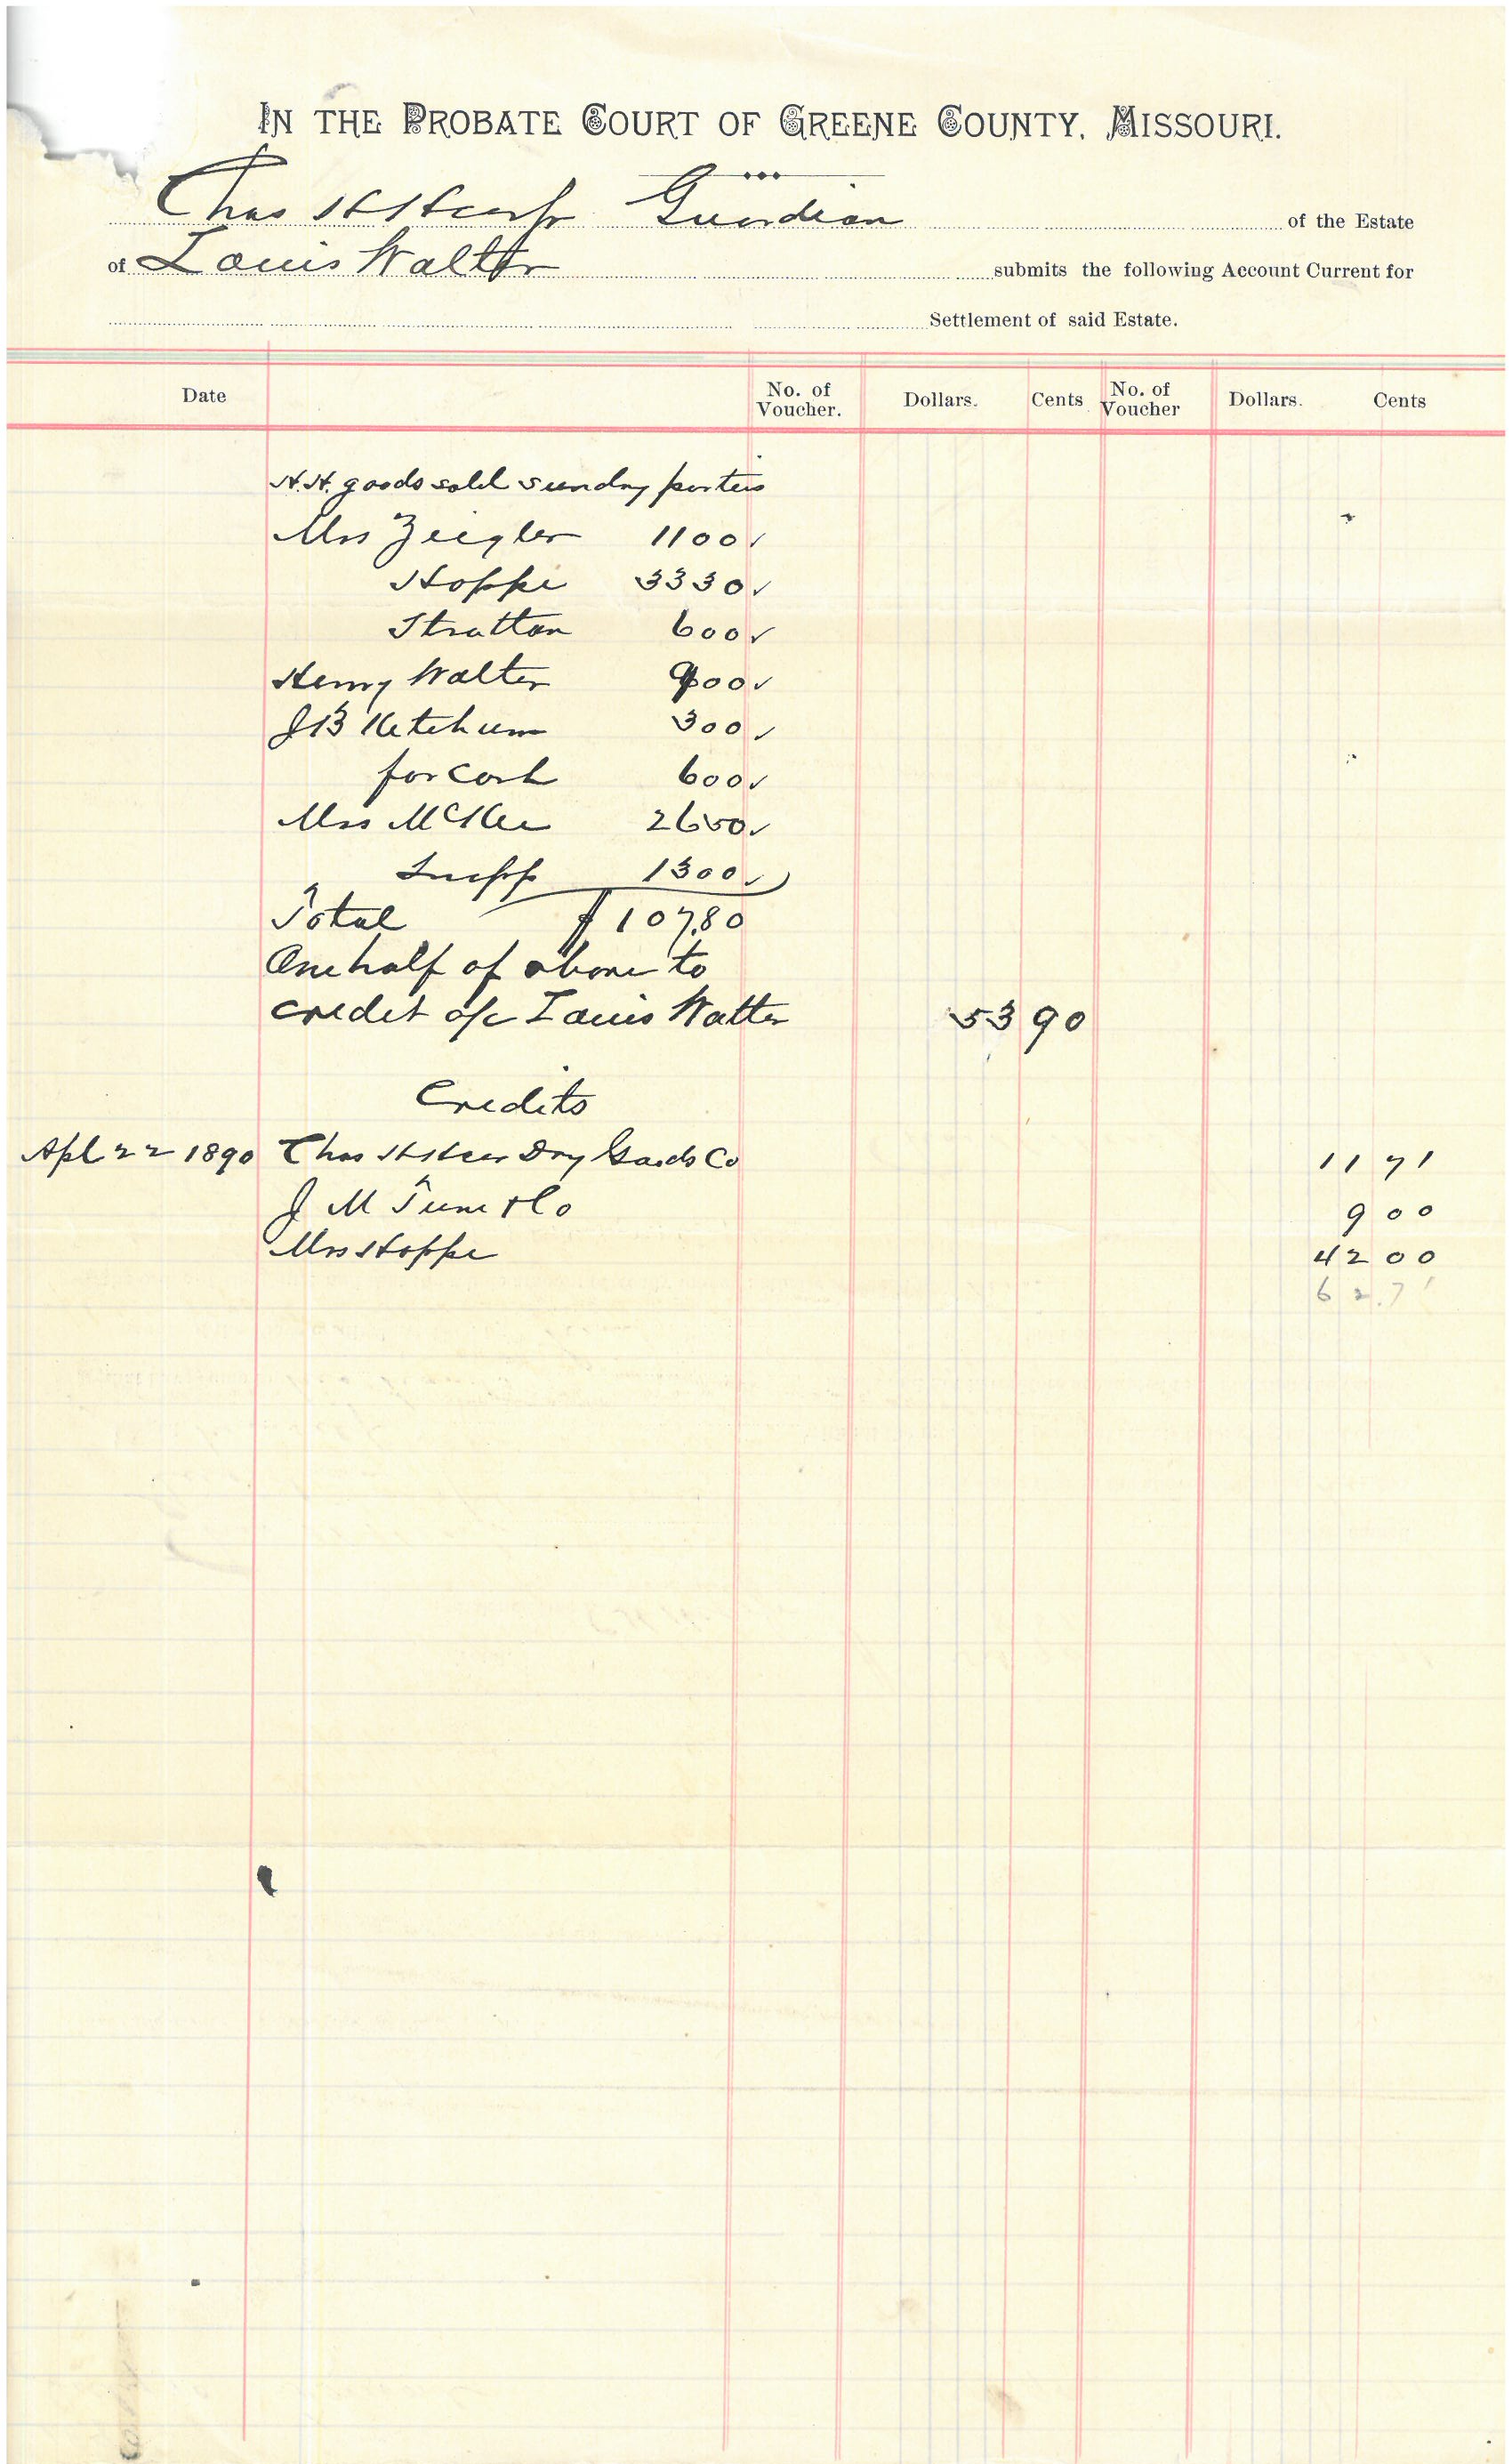 IN THE PROBATE COURT OF GREENE COUNTY, MISSOURI.
Chas H Heer Jr Guardian of the Estate
of Louis Walter submits the following Account Current for
Settlement of said Estate.
Date No. of Voucher. Dollars. Cents No. of Voucher Dollars. Cents
H.H. goods sold sundry parties
Mrs Zeigler 1100✓
Hoppe 3330✓
Stratton 600✓
Henry Walter 900✓
J B Ketchum 300✓
for Cash 600✓
Mrs McKee 2650✓
1300✓
Total $107.80
One half of above to
credit a/c Louis Walter 53 90
Credits
Apl 22 1890 Chas H Heer Dry Goods Co 11 71
J M & Co 9 00
Mrs Hoppe 42 00
62.71